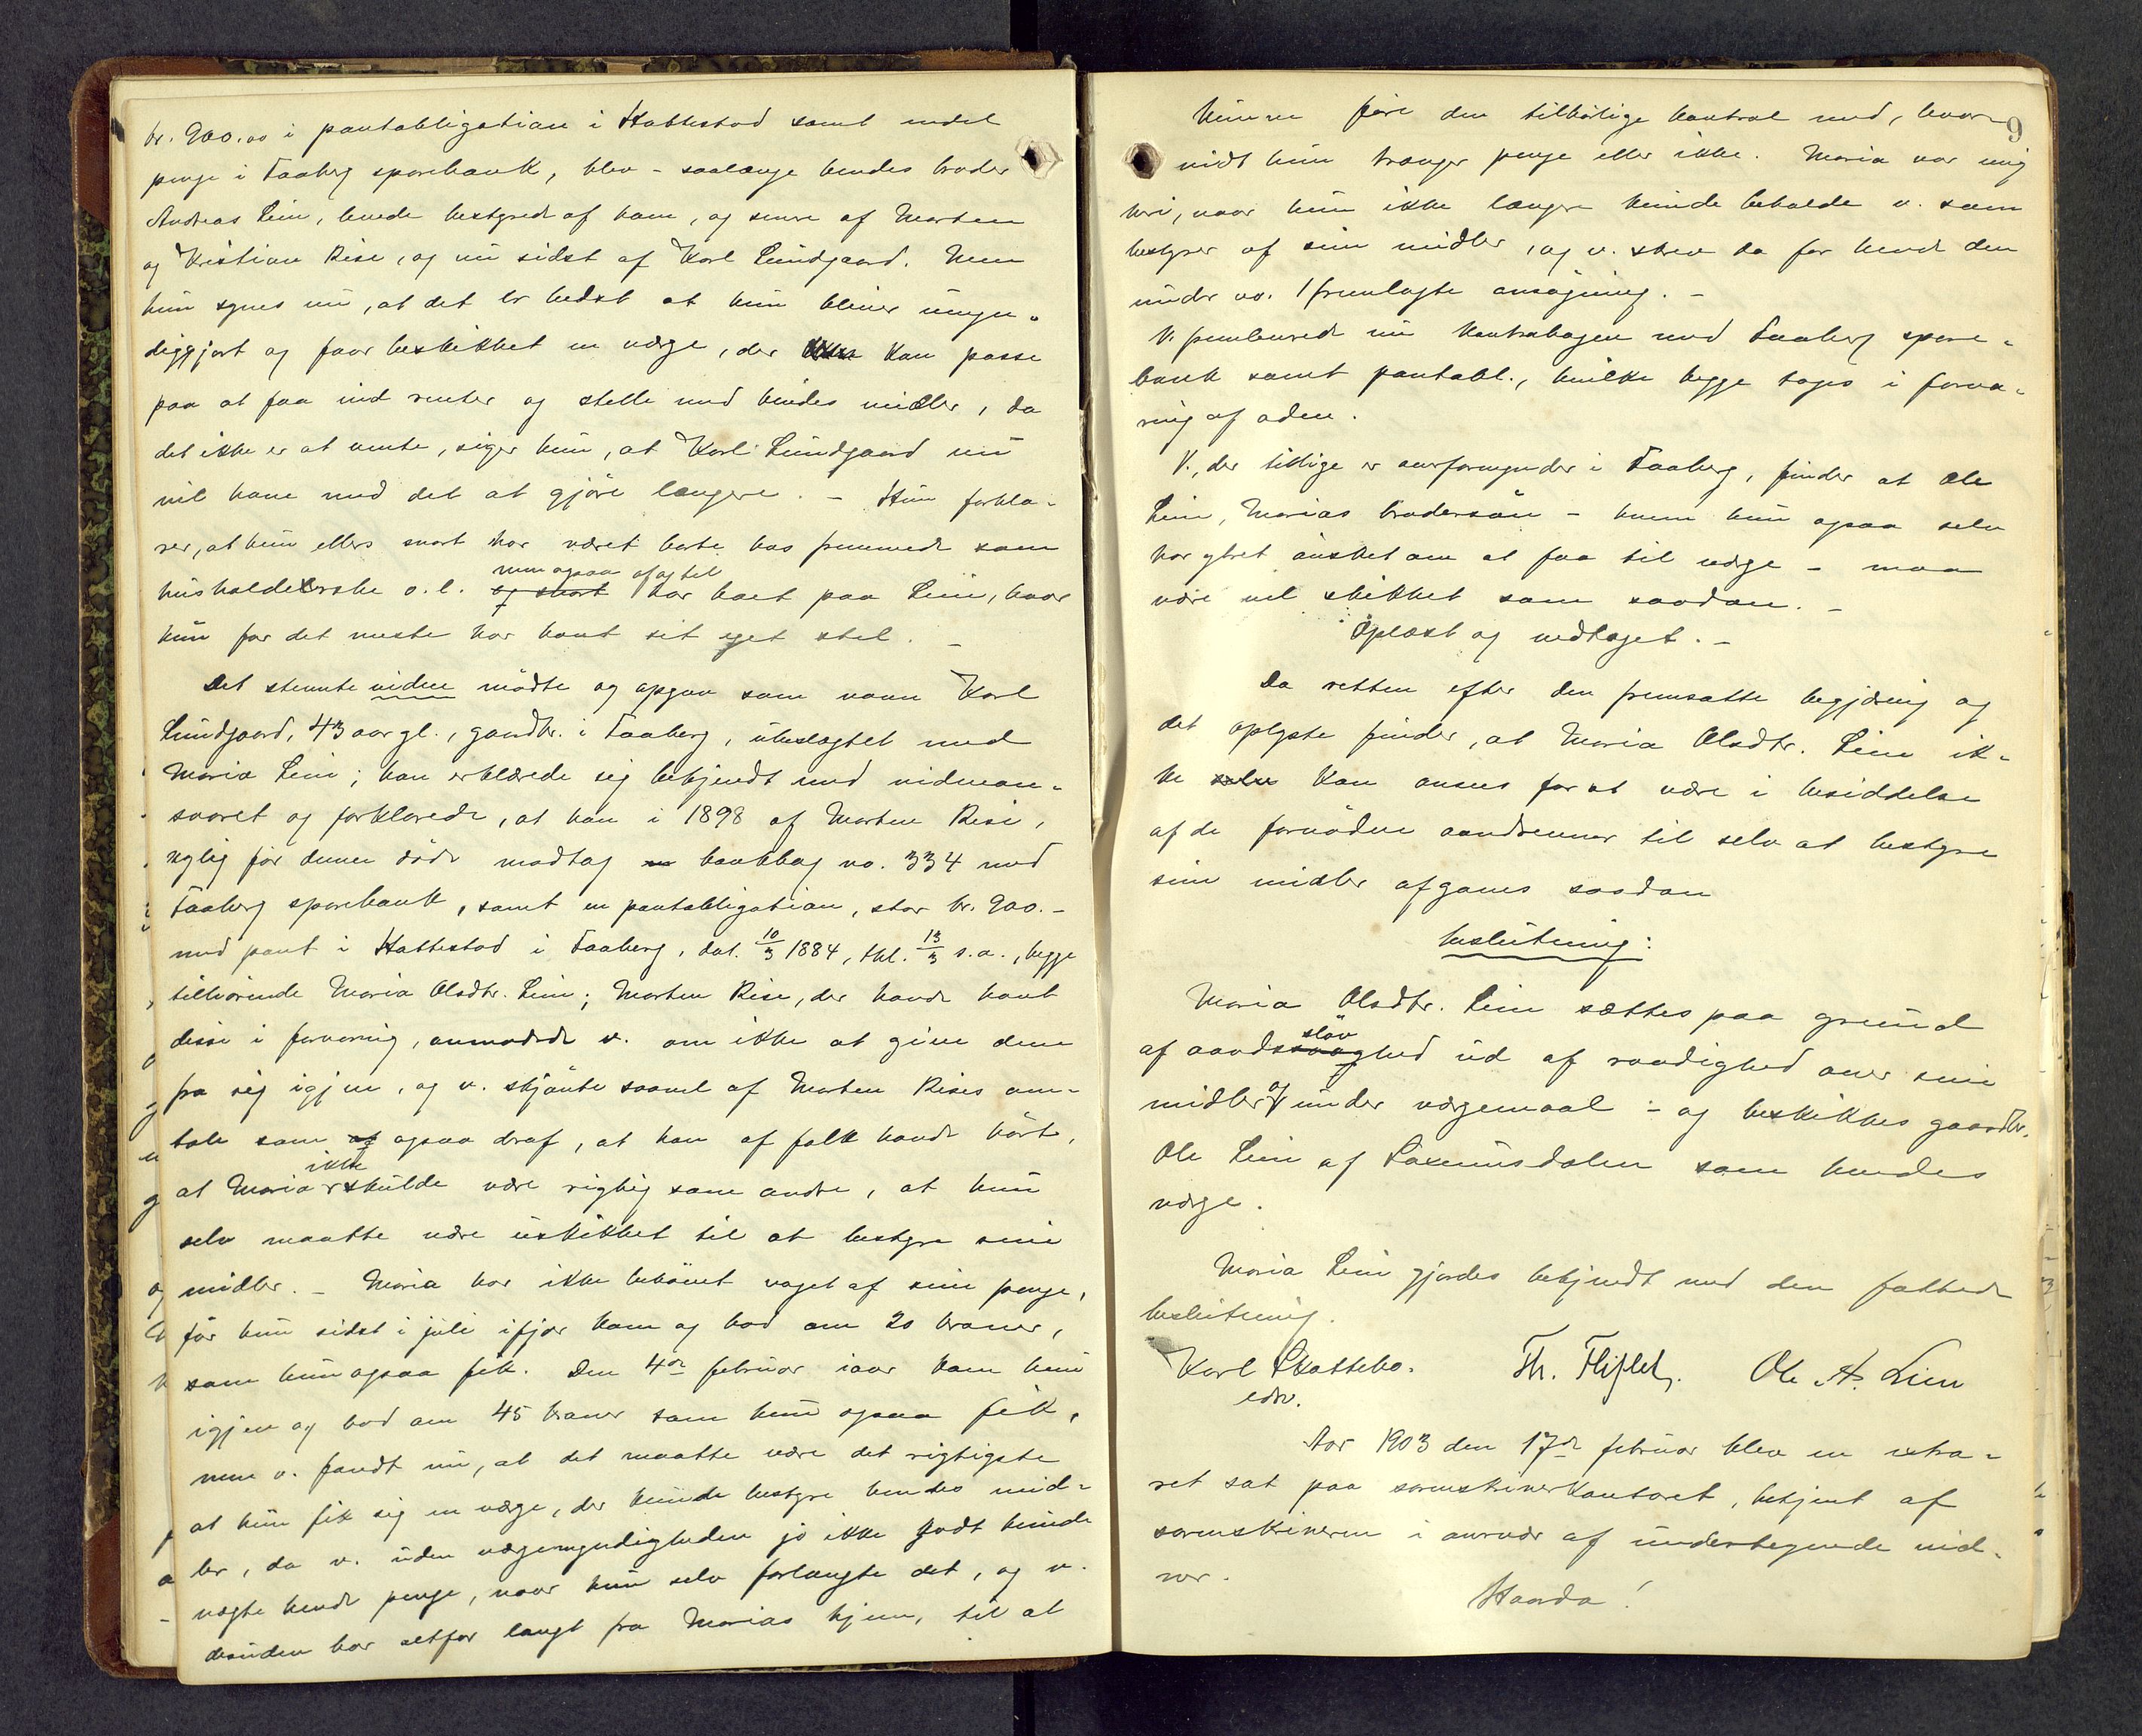 kr. 900.00 i pantobligation i Hattestad samt endel
penge i Faaberg sparebank, blev – saalænge hendes broder
Andreas Lien, levede bestyret af ham, og senere af Morten
og Kristian Rise, og nu sidst af Karl Lundgaard. Men
hun synes nu, at det er bedst at hun bliver umyn-
diggjort og faar beskikket en værge, der kan passe
paa at faa ind renter og stelle med hendes midler, da
det ikke er at vente, siger hun, at Karl Lundgaard nu
vil have med det at gjöre længere. – Hun forkla-
rer, at hun ellers snart har været borte hos fremmede som
husholderske o.l. og snart men ogsaa af og til har boet paa Lien, hvor
hun for det meste har havt sit eget stel. –
Det stevnte vidne mödte og opgav som navn Karl
Lundgaard, 43 aar gl., gaardbr. i Faaberg, ubeslægtet med
Maria Lien; han erklærede sig bekjendt med vidnean-
svaret og forklarede, at han i 1898 af Morten Rise,
nylig för denne döde modtog bankbog no. 334 med
Faaberg sparebank, samt en pantobligation, stor kr. 900.–
med pant i Hattestad i Faaberg, dat. 10/3 1884, thl. 13/3 s.a., begge
tilhörende Maria Olsdtr. Lien; Morten Rise, der havde havt
disse i forvaring, anmodede v. om ikke at give dem
fra sig igjen, og v. skjönte saavel af Morten Rises om-
tale som af ogsaa deraf, at han af folk havde hört,
at Maria ikke skulde være rigtig som andre, at hun
selv maatte være uskikket til at bestyre sine
midler. – Maria har ikke behövet noget af sine penge,
för hun sidst i juli ifjor kom og bad om 20 kroner,
som hun ogsaa fik. Den 4de februar iaar kom hun
igjen og bad om 45 kroner som hun ogsaa fik,
men v. fandt nu, at det maatte være det rigtigste
at hun fik sig en værge, der kunde bestyre hendes mid-
ler, da v. uden værgemyndigheden jo ikke godt kunde
nægte hende penge, naar hun selv forlangte det, og v.
desuden bor altfor langt fra Marias hjem, til at
9
kunne före den tilbörlige kontrol med, hvor-
vidt hun trænger penge eller ikke. Maria var enig
heri, naar hun ikke længere kunde beholde v. som
bestyrer af sine midler, og v. skrev da for hende den
under no. 1 fremlagte ansögning. –
V. fremleverede nu kontrabogen med Faaberg spare-
bank samt pantobl., hvilke begge toges i forva-
ring af adm.
V., der tillige er overformynder i Faaberg, finder at Ole
Lien, Marias brodersön – hvem hun ogsaa selv
har ytret önsket om at faa til værge – maa
være vel skikket som saadan. –
Oplæst og vedtaget. –
Da retten efter den fremsatte begjæring og
det oplyste finder, at Maria Olsdtr. Lien ik-
ke selv kan ansees for at være i besiddelse
af de fornödne aandsevner til selv at bestyre
sine midler afgaves saadan
beslutning:
Maria Olsdtr. Lien sættes paa grund
af aandssvag slövhed ud af raadighed over sine
midler og under værgemaal – og beskikkes gaardbr.
Ole Lien af Saxumsdalen som hendes
værge.
Maria Lien gjordes bekjendt med den fattede
beslutning.
Karl Skattebo. Th. Fliflet. Ole A. Lien
edv.
Aar 1903 den 17de februar blev en extra-
ret sat paa sorenskriverkontoret, betjent af
sorenskriveren i nærvær af undertegnede vid-
ner.
Haarda!